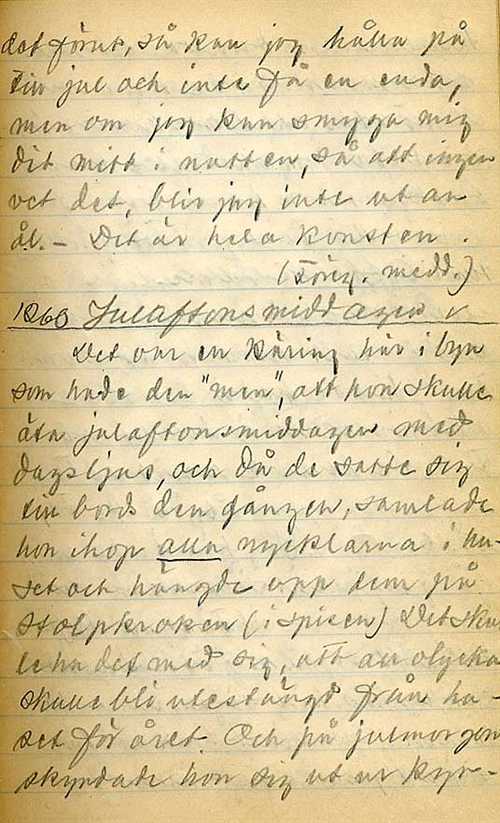 det förut, så kan jag hålla på
till jul och inte få en enda,
men om jag kan smyga mig
dit mitt i natten, så att ingen
vet det, blir jag inte utan
ål. – Det är hela konsten.
(Föreg. medd.)
1263 Julaftonsmiddagen
Det var en käring här i byn
som hade den "men", att hon skulle
äta julaftonsmiddagen med
dagsljus, och då de satte sig
till bords den gången, samlade
hon ihop alla nycklarna i hu-
set och hängde upp dem på
stolpkroken (i spisen) Det sku
le ha det med sig, att all olycka
skulle bli utestängd från hu-
set för året. Och på julmorgon
skyndade hon sig ut ur kyr-